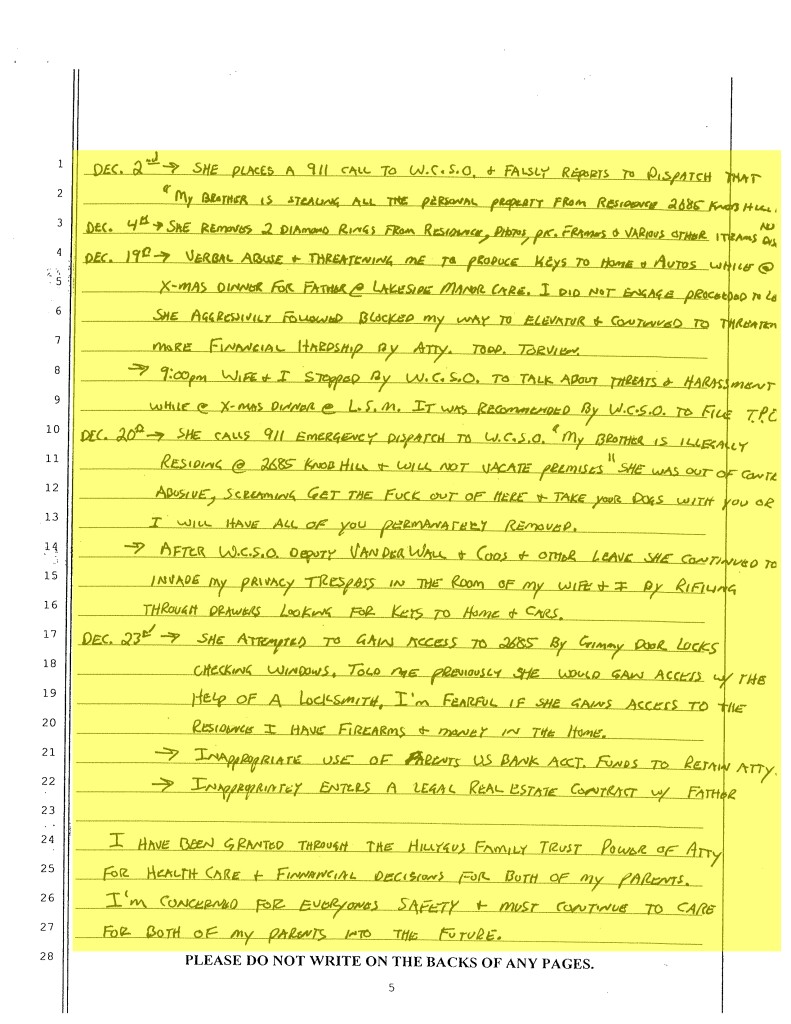 1 DEC. 2nd → SHE PLACES A 911 CALL TO W.C.S.O. & FALSLY REPORTS TO DISPATCH THAT
2 "MY BROTHER IS STEALING ALL THE PERSONAL PROPERTY FROM RESIDENCE 2685 KNOB HILL.
3 DEC. 4th → SHE REMOVES 2 DIAMOND RINGS FROM RESIDENCE, PHOTOS, PIC. FRAMES & VARIOUS OTHER ITEAMS
4 DEC. 19th → VERBAL ABUSE & THREATENING ME TO PRODUCE KEYS TO HOME & AUTOS WHILE @
5 X-MAS DINNER FOR FATHER @ LAKESIDE MANOR CARE. I DID NOT ENGAGE PROCEEDED TO
6 SHE AGGRESIVILY FOLLOWED BLOCKED MY WAY TO ELEVATOR & CONTINUED TO THREATEN
7 MORE FINANCIAL HARDSHIP BY ATTY. TODD. TORVIEN.
8 → 9:00pm WIFE & I STOPPED BY W.C.S.O. TO TALK ABOUT THREATS & HARASSMENT
9 WHILE @ X-MAS DINNER @ L.S.M. IT WAS RECOMMENDED BY W.C.S.O. TO FILE T.P.O
10 DEC. 20th → SHE CALLS 911 EMERGENCY DISPATCH TO W.C.S.O. "MY BROTHER IS ILLEGALLY
11 RESIDING @ 2685 KNOB HILL & WILL NOT VACATE PREMISES" SHE WAS OUT OF CONTR
12 ABUSIVE, SCREAMING GET THE FUCK OUT OF HERE & TAKE YOUR DOGS WITH YOU OR
13 I WILL HAVE ALL OF YOU PERMANATELY REMOVED.
14 → AFTER W.C.S.O. DEPUTY VANDERWALL & COOS & OTHER LEAVE SHE CONTINUED TO
15 INVADE MY PRIVACY TRESPASS IN THE ROOM OF MY WIFE & I BY RIFILING
16 THROUGH DRAWERS LOOKING FOR KEYS TO HOME & CARS.
17 DEC. 23rd → SHE ATTEMPTED TO GAIN ACCESS TO 2685 BY GIMMY DOOR LOCKS
18 CHECKING WINDOWS. TOLD ME PREVIOUSLY SHE WOULD GAIN ACCESS W/ THE
19 HELP OF A LOCKSMITH, I'M FEARFUL IF SHE GAINS ACCESS TO THE
20 RESIDENCE I HAVE FIREARMS & MONEY IN THE HOME.
21 → INAPPROPRIATE USE OF PARENTS US BANK ACCT. FUNDS TO RETAIN ATTY.
22 → INAPPROPRIATEY ENTERS A LEGAL REAL ESTATE CONTRACT W/ FATHER
23
24 I HAVE BEEN GRANTED THROUGH THE HILLYGUS FAMILY TRUST POWER OF ATTY
25 FOR HEALTH CARE & FINNANCIAL DECISIONS FOR BOTH OF MY PARENTS.
26 I'M CONCERNED FOR EVERYONES SAFETY & MUST CONTINUE TO CARE
27 FOR BOTH OF MY PARENTS INTO THE FUTURE.
28 PLEASE DO NOT WRITE ON THE BACKS OF ANY PAGES.
5